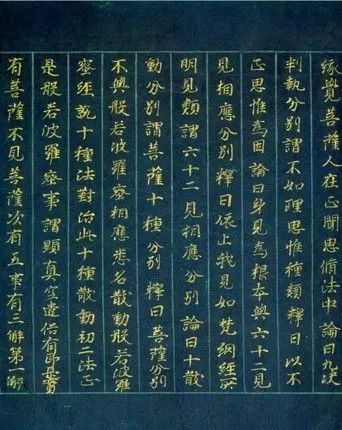 緣覺菩薩人在正聞思脩法中論曰九决
判執分別謂不如理思惟種類釋曰以不
正思惟爲因論曰身見爲根本與六十二見
見相應分別釋曰依上我見如梵網經所
明見類謂六十二見相應分別論曰十散
動分別謂菩薩十種分別釋曰菩薩分別
不與般若波羅蜜相應悉名散動般若波羅
蜜經說十種法對治此十種散動初二法正
是般若波羅蜜事謂顯真空遣俗有即是實
有菩薩不見菩薩次有五事有三解第一解